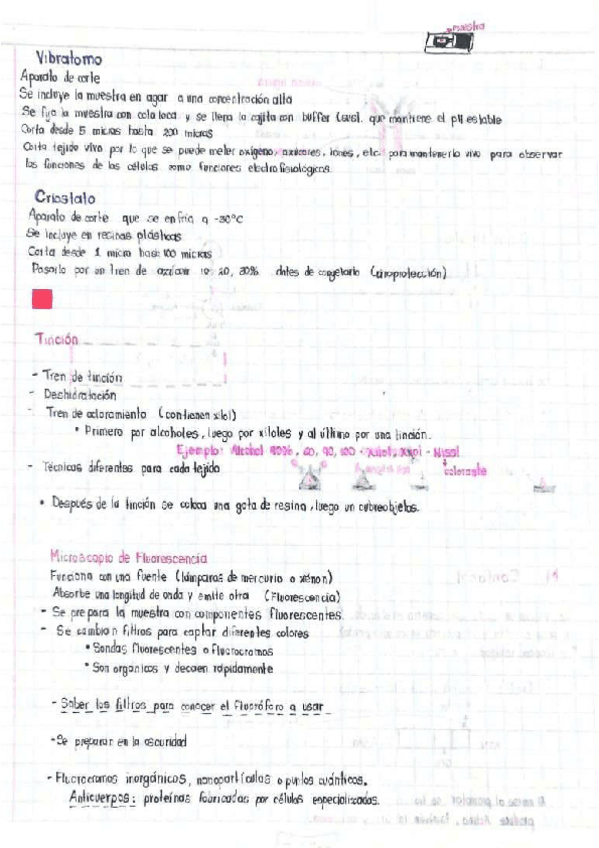 muestra
Vibratomo
Aparato de corte
Se incluye la muestra en agar a una concentración alta
Se fija la muestra con cola loca y se llena la cajita con buffer (sust. que mantiene el pH estable
Corta desde 5 micras hasta 200 micras
Corta tejido vivo por lo que se puede meter oxígeno, azúcares, iones, etc. para mantenerlo vivo para observar
las funciones de las células como funciones electrofisiológicas.
Criostato
Aparato de corte que se enfría a -30°C
Se incluye en recinas plásticas
Corta desde 1 micra hasta 100 micras
Pasarlo por un tren de azúcar 10, 20, 30% antes de congelarlo (crioprotección)
Tinción
- Tren de tinción
- Deshidratación
- Tren de acloramiento (contienen xilol)
• Primero por alcoholes, luego por xiloles y al último por una tinción.
Ejemplo: Alcohol
- Técnicas diferentes para cada tejido
colorante
• Después de la tinción se coloca una gota de resina, luego un cubreobjetos.
Microscopio de Fluorescencia
Funciona con una fuente (lámparas de mercurio o xénon)
Absorbe una longitud de onda y emite otra (Fluorescencia)
- Se prepara la muestra con componentes fluorescentes.
- Se cambian filtros para captar diferentes colores
• Sondas fluorescentes o fluorocromos
• Son orgánicos y decaen rápidamente
- Saber los filtros para conocer el fluoróforo a usar
- Se preparar en la oscuridad
- Fluorocromos inorgánicos, nanopartículas o puntos cuánticos.
Anticuerpos: proteínas fabricadas por células especializadas.